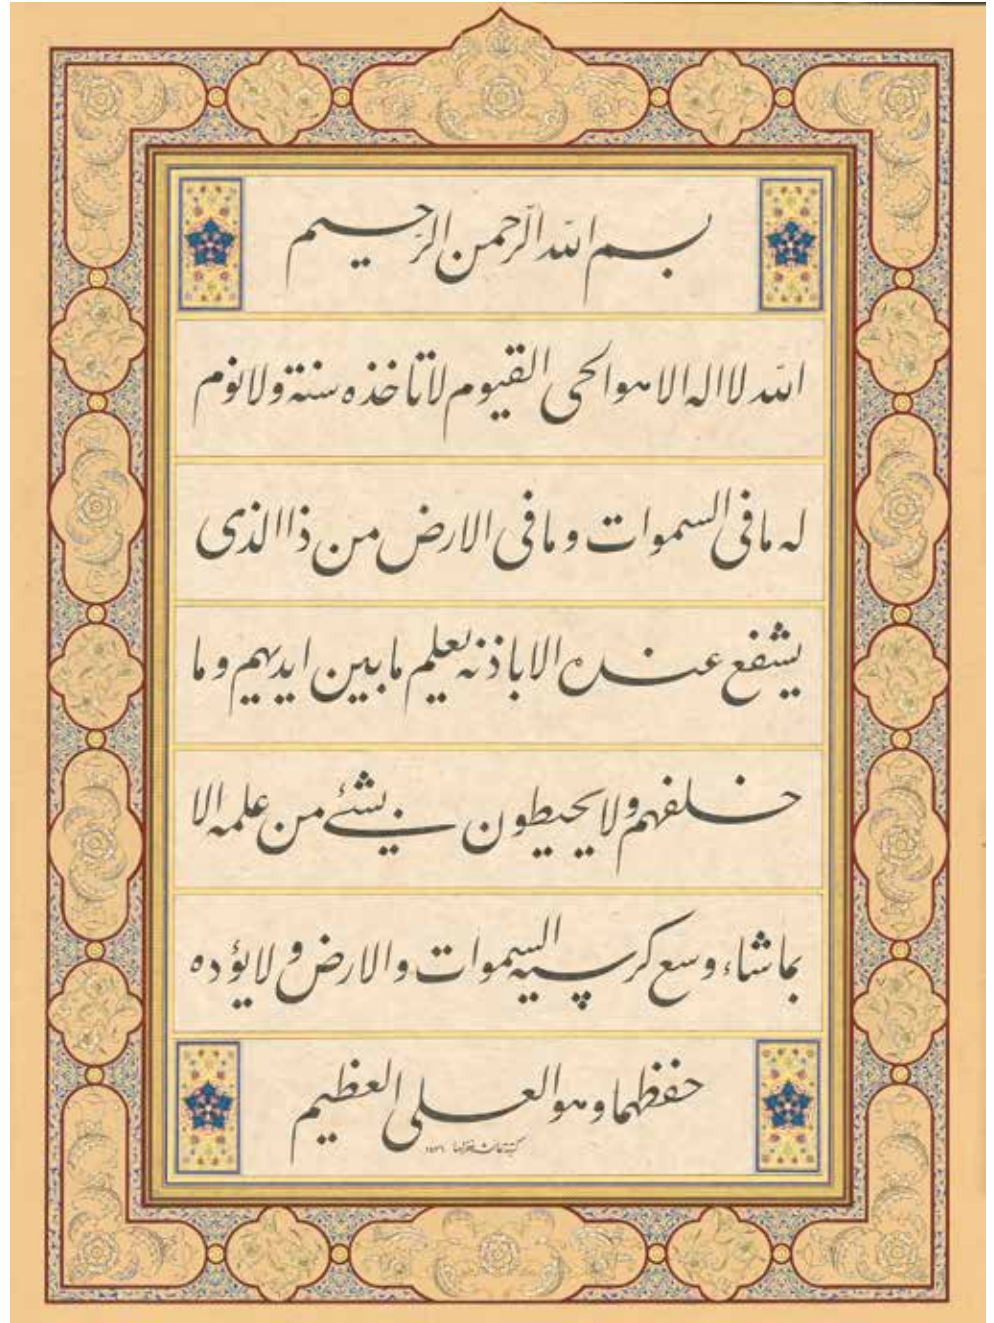 بسم الله الرّحمن الرّحيم
الله لا اله الا هو الحى القيوم لا تاخذه سنة ولا نوم
له ما فى السموات و ما فى الارض من ذا الذى
يشفع عنده الا باذنه يعلم ما بين ايديهم و ما
خلفهم ولا يحيطون بشئ من علمه الا
بما شاء وسع كرسيه السموات والارض و لا يؤده
حفظهما وهو العلى العظيم